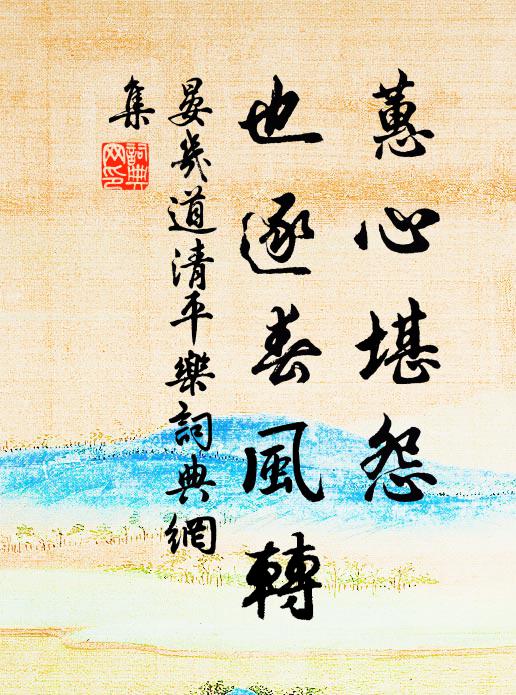 蕙心堪怨
也逐春風轉
晏幾道清平樂詞典網
集
詞典網印